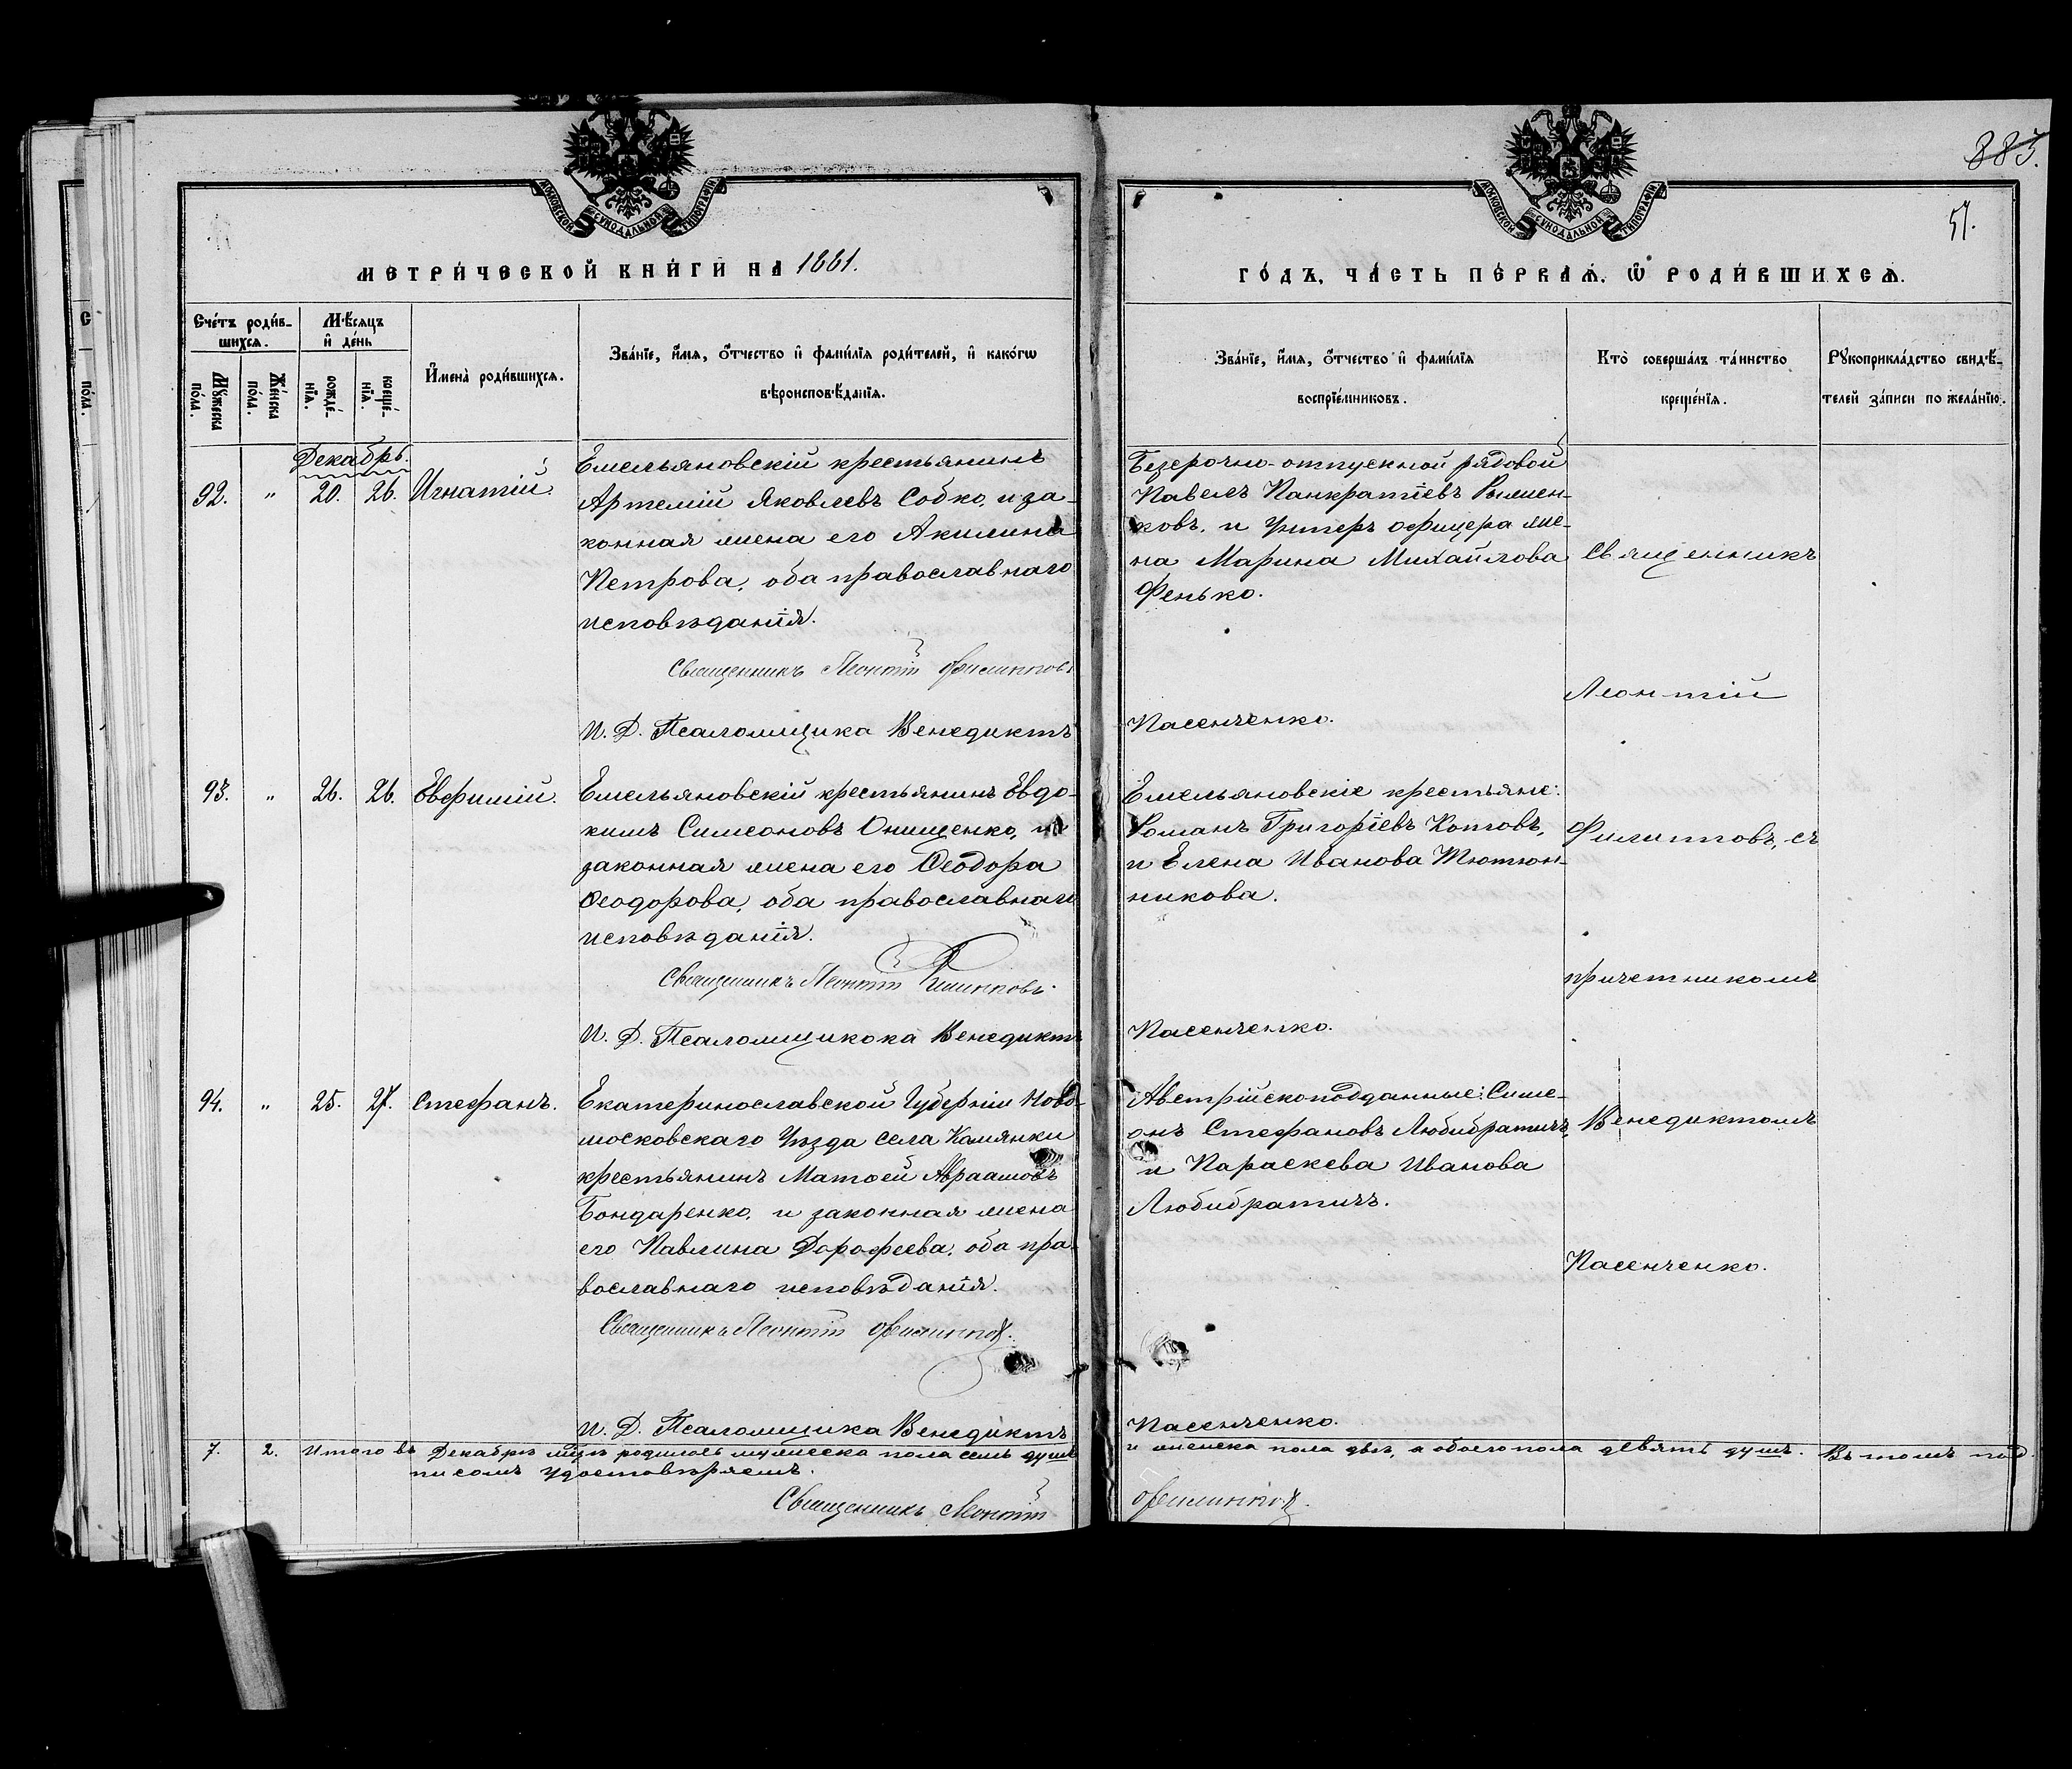 883.
51.
МОСКОВСКОЙ СѴНОДАЛЬНОЙ ТИПОГРАФІИ
МОСКОВСКОЙ СѴНОДАЛЬНОЙ ТИПОГРАФІИ
МЕТРИ́ЧЕСКОЙ КНИ́ГИ НА 1881.
ГО́ДЪ, ЧА́СТЬ ПЕ́РВАѦ, Ѡ҆ РОДИ́ВШИХСѦ.
Сче́тъ роди́в-
шихсѧ.
Мꙋ́жеска по́ла.
Же́нска по́ла.
Мѣ́сѧцъ
и҆ де́нь
рожде́-
нїѧ.
креще́-
нїѧ.
И҆мена̀ роди́вшихсѧ.
Зва́нїе, и҆́мѧ, ѻ҆́тчество и҆ фами́лїѧ роди́телей, и҆ како́гѡ
вѣроисповѣ́данїѧ.
Зва́нїе, и҆́мѧ, ѻ҆́тчество и҆ фами́лїѧ
воспрїе́мниковъ.
Кто̀ соверша́лъ та́инство
креще́нїѧ.
Рꙋкоприкла́дство свидѣ́-
телей за́писи по жела́нїю.
Декабрь.
92. " 20. 26. Игнатій.
Емельяновскій крестьянинъ
Артемій Яковлевъ Собко, и за-
конная жена его Акилина
Петрова, оба православнаго
исповѣданія.
Священникъ Леонтій Филипповъ
И. Д. Псаломщика Венедиктъ
Безсрочно-отпускной рядовой
Павелъ Панкратіевъ
ковъ, и Унтеръ офицера же-
на Марина Михайлова
Фенько.
Пасенченко.
93. " 26. 26. Евфимій.
Емельяновскій крестьянинъ Евдо-
кимъ Симеоновъ Онищенко, и
законная жена его Ѳеодора
Ѳеодорова, оба православнаго
исповѣданія.
Священникъ Леонтій Филипповъ
И. Д. Псаломщикока Венедиктъ
Емельяновскіе крестьяне:
Романъ Григоріевъ Котовъ,
и Елена Иванова Тютюн-
никова.
Пасенченко.
94. " 25. 27. Стефанъ.
Екатеринославской Губерніи Ново-
московскаго Уѣзда села Камянки
крестьянинъ Матѳей Авраамовъ
Бондаренко, и законная жена
его Павлина Дорофеева, оба пра-
вославнаго исповѣданія.
Священникъ Леонтій Филипповъ.
И. Д. Псаломщика Венедиктъ
Австрійскоподданные: Симе-
онъ Стефановъ Любибратичъ,
и Параскева Иванова
Любибратичъ.
Пасенченко.
Священникъ
Леонтій
Филипповъ, съ
причетникомъ
Венедиктомъ
Пасенченко.
7. 2. Итого въ Декабрѣ мцѣ родилось мужеска пола семь душъ и женска пола двѣ, а обоего пола девять душъ. Въ томъ под-
писомъ удостовѣряемъ.
Священникъ Леонтій Филипповъ.